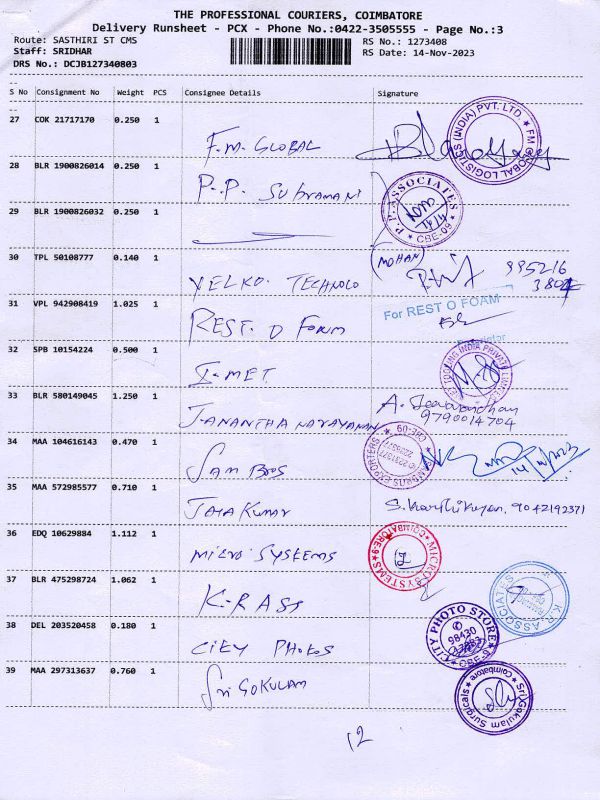 THE PROFESSIONAL COURIERS, COIMBATORE
Delivery Runsheet - PCX - Phone No.:0422-3505555 - Page No.:3
Route: SASTHIRI ST CMS RS No.: 1273408
Staff: SRIDHAR RS Date: 14-Nov-2023
DRS No.: DCJB127340803
S No Consignment No Weight PCS Consignee Details Signature
27 COK 21717170 0.250 1
F.M. GLOBAL
FM GLOBAL LOGISTICS (INDIA) PVT. LTD.
28 BLR 1900826014 0.250 1
P.P. Subramani
P.P. ASSOCIATES
CBE-09
29 BLR 1900826032 0.250 1
30 TPL 50108777 0.140 1
(MOHAN)
YELKO. TECHNOLO
995216
3804
31 VPL 942908419 1.025 1
For REST O FOAM
REST. O FORM
32 SPB 10154224 0.500 1
I-MET
33 BLR 580149045 1.250 1
J-ANANTHA NARAYANAN
9790014704
34 MAA 104616143 0.470 1
SAM BROS
SAMBRUS EXPORTERS
CBE-09
35 MAA 572985577 0.710 1
JAYA KUMAR
S. Karthikeyan, 9042192371
36 EDQ 10629884 1.112 1
MICRO SYSTEMS
MICRO SYSTEMS
COIMBATORE-9
37 BLR 475298724 1.062 1
K-R ASS
K.R ASSOCIATES
38 DEL 203520458 0.180 1
CITY PHOTOS
CITY PHOTO STORE
98430
CBE-9
39 MAA 297313637 0.760 1
Sri GOKULAM
Sri Gokulam Surgicals
Coimbatore
12